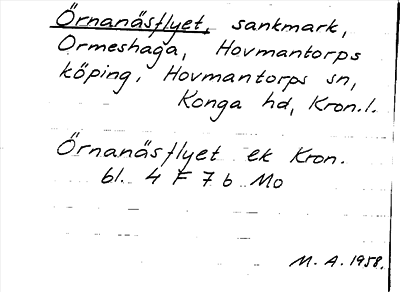 Örnanäsflyet, sankmark,
Ormeshaga, Hovmantorps
köping, Hovmantorps sn,
Konga hd, Kron.l.
Örnanäsflyet ek Kron.
bl. 4 F 7 b Mo
M. A. 1958.